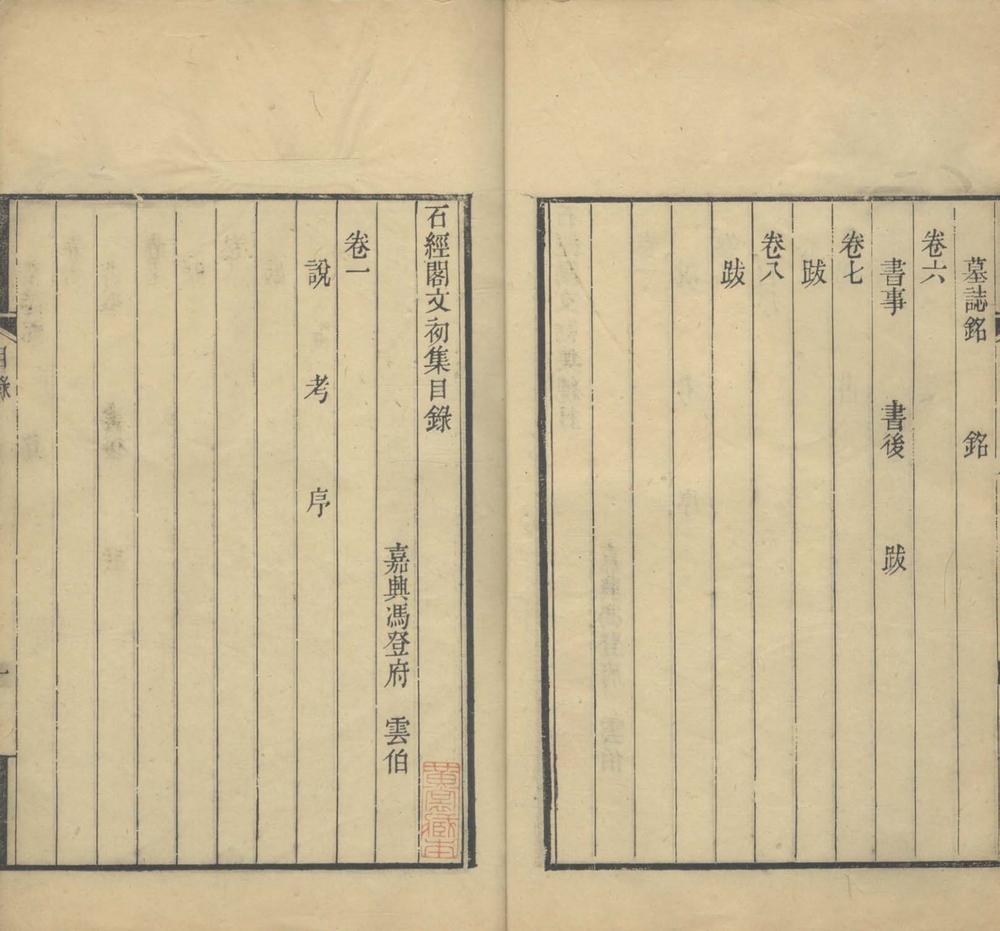 墓誌銘 銘
卷六
書事 書後 跋
卷七
跋
卷八
跋
石經閣文初集目錄
嘉興馮登府 雲伯
卷一
說 考 序
目錄
一